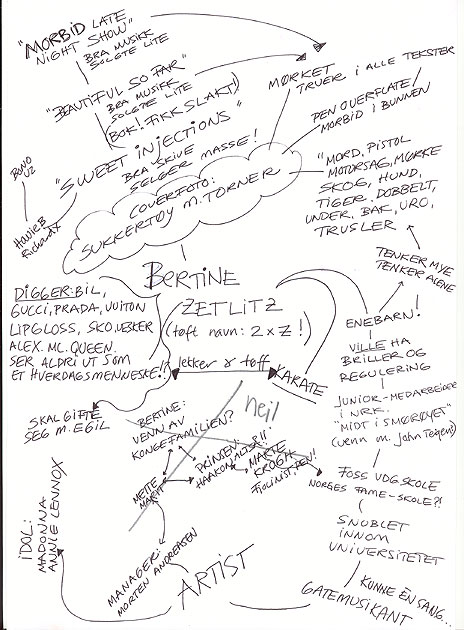 "MORBID LATE
NIGHT SHOW"
BRA MUSIKK
SOLGTE LITE
"BEAUTIFUL SO FAR"
BRA MUSIKK
SOLGTE LITE
(BOK! FIKK SLAKT)
"SWEET INJECTIONS"
BRA SKIVE
SELGER MASSE!
COVERFOTO:
SUKKERTØY M. TORNER
MØRKET
TRUER I ALLE TEKSTER
PEN OVERFLATE/
MORBID I BUNNEN
"MORD, PISTOL
MOTORSAG, MØRKE
SKOG, HUND,
TIGER, DOBBELT,
UNDER, BAK, URO,
TRUSLER
TENKER MYE
TENKER ALENE
BONO
U2
RichardX
BERTINE
ZETLITZ
(tøft navn: 2 x Z!)
lekker & tøff
KARATE
DIGGER: BIL,
GUCCI, PRADA, VUITON
LIPGLOSS, SKO, VESKER
ALEX. MC. QUEEN.
SER ALDRI UT SOM
ET HVERDAGSMENNESKE!?
SKAL GIFTE
SEG M. EGIL
ENEBARN!
VILLE HA
BRILLER OG
REGULERING
JUNIOR-MEDARBEIDER
I NRK.
"MIDT I SMØRØYET"
(venn m. John Teigen)
FOSS VDG SKOLE
NORGES FAME-SKOLE?!
SNUBLET
INNOM
UNIVERSITETET
KUNNE ÈN SANG...
GATEMUSIKANT
ARTIST
BERTINE:
VENN AV
KONGEFAMILIEN?
neil
PRINSEN:
HAAKON
MARTE
KROGH
FIOLINIST, PEN!
METTE
MARIT
MANAGER:
MORTEN ANDREASEN
IDOL:
MADONNA
ANNIE LENNOX